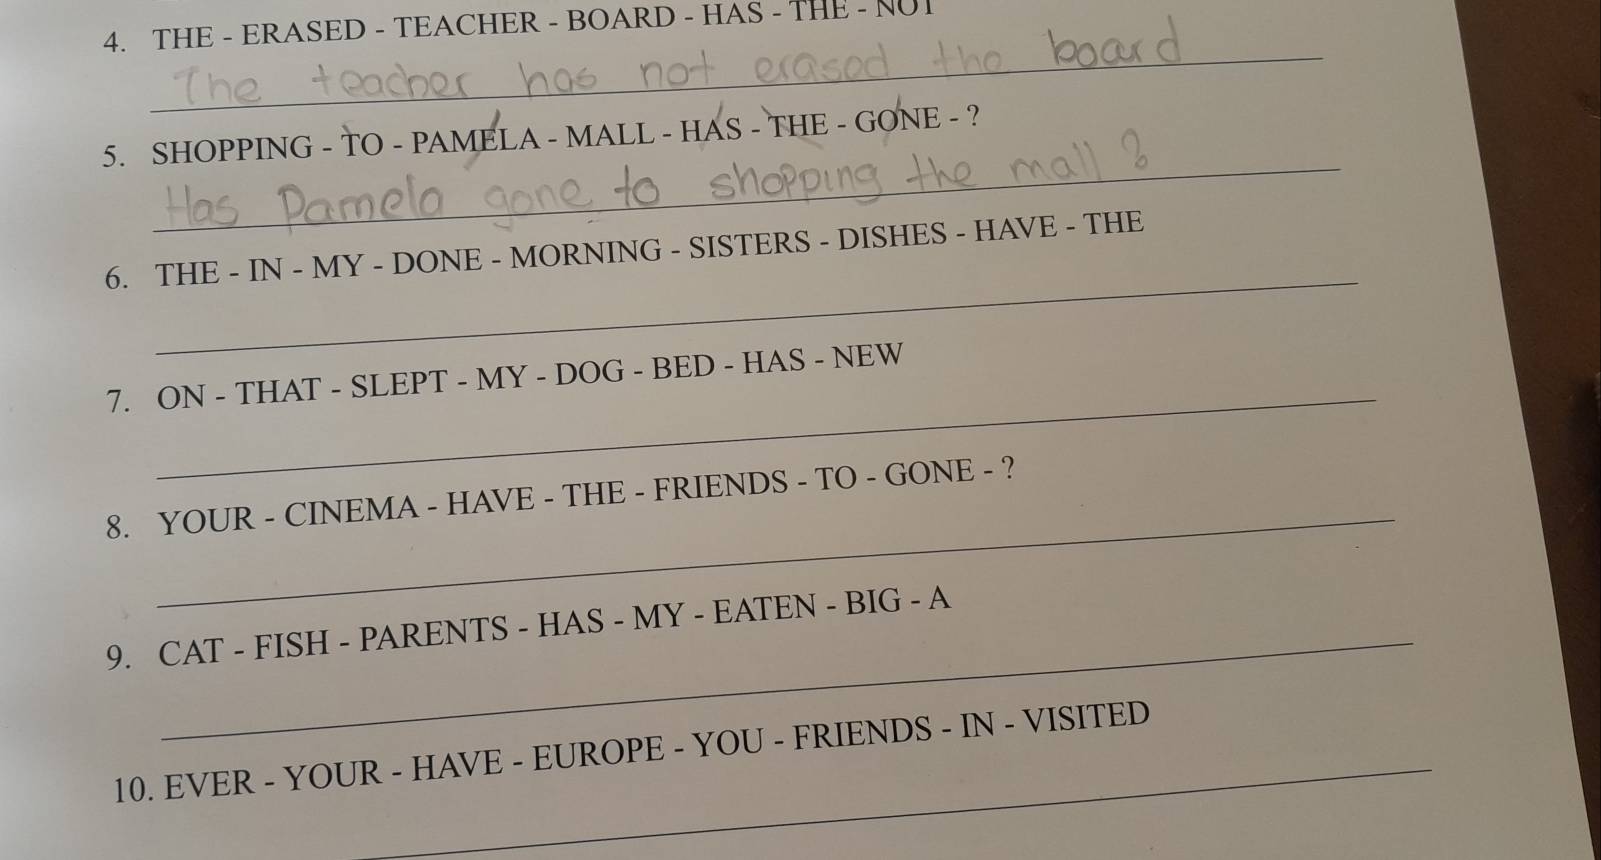 4. THE - ERASED - TEACHER - BOARD - HAS - THE - NOT
The teacher has not erased the board
5. SHOPPING - TO - PAMELA - MALL - HAS - THE - GONE - ?
Has Pamela gone to shopping the mall?
6. THE - IN - MY - DONE - MORNING - SISTERS - DISHES - HAVE - THE
7. ON - THAT - SLEPT - MY - DOG - BED - HAS - NEW
8. YOUR - CINEMA - HAVE - THE - FRIENDS - TO - GONE - ?
9. CAT - FISH - PARENTS - HAS - MY - EATEN - BIG - A
10. EVER - YOUR - HAVE - EUROPE - YOU - FRIENDS - IN - VISITED